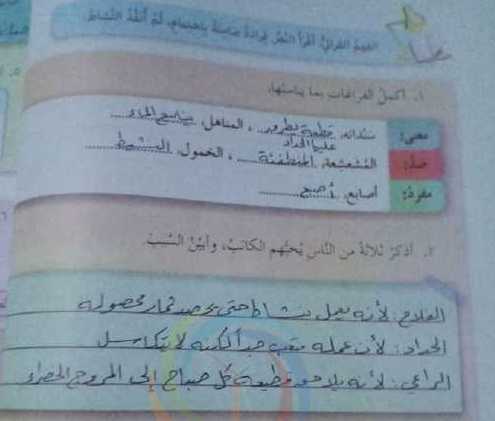 الفهم القرائي: أقرأ النص قراءة صامتة باهتمام، ثم أنفذ النشاط
١. أكمل الفراغات بما يناسبها.
معنى: سندانه قطعة يطرق عليها الحداد، المناهل ينابيع الماء
ضد: المشعشعة، المنطفئة، الخمول النشيط
مفرد: أصابع، أصبع
٢. أذكر ثلاثة من الناس يحبهم الكاتب، وأبين السبب.
الفلاح: لأنه يعمل بنشاط حتى يحصد ثمار محصوله
الحداد: لأن عمله متعب جدا لكنه لا يتكاسل
الراعي: لأنه يلاحق قطيعه كل صباح إلى المروج الخضراء